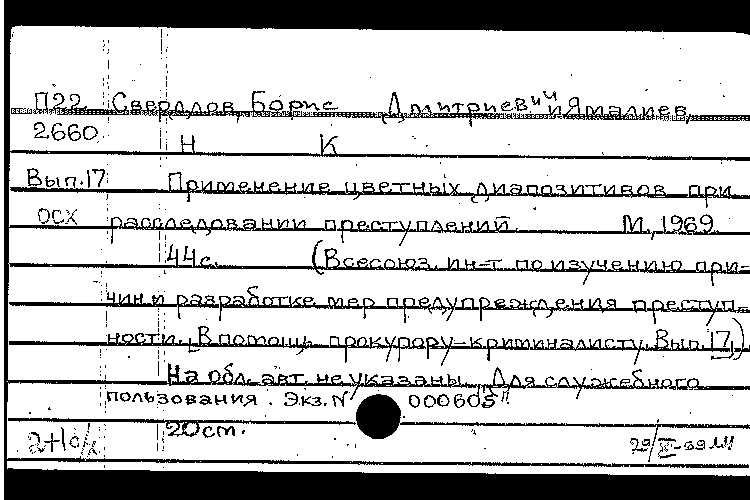 П22 Свердлов, Борис Дмитриевич и Ямалиев,
2660 Н К
Вып.17 Применение цветных диапозитивов при
ОСХ расследовании преступлений. М., 1969.
44с. (Всесоюз. ин-т по изучению при-
чин и разработке мер предупреждения преступ-
ности. В помощь прокурору-криминалисту. Вып. 17)
На обл. авт. не указаны. „Для служебного
пользования. Экз. N 000605"
20см.